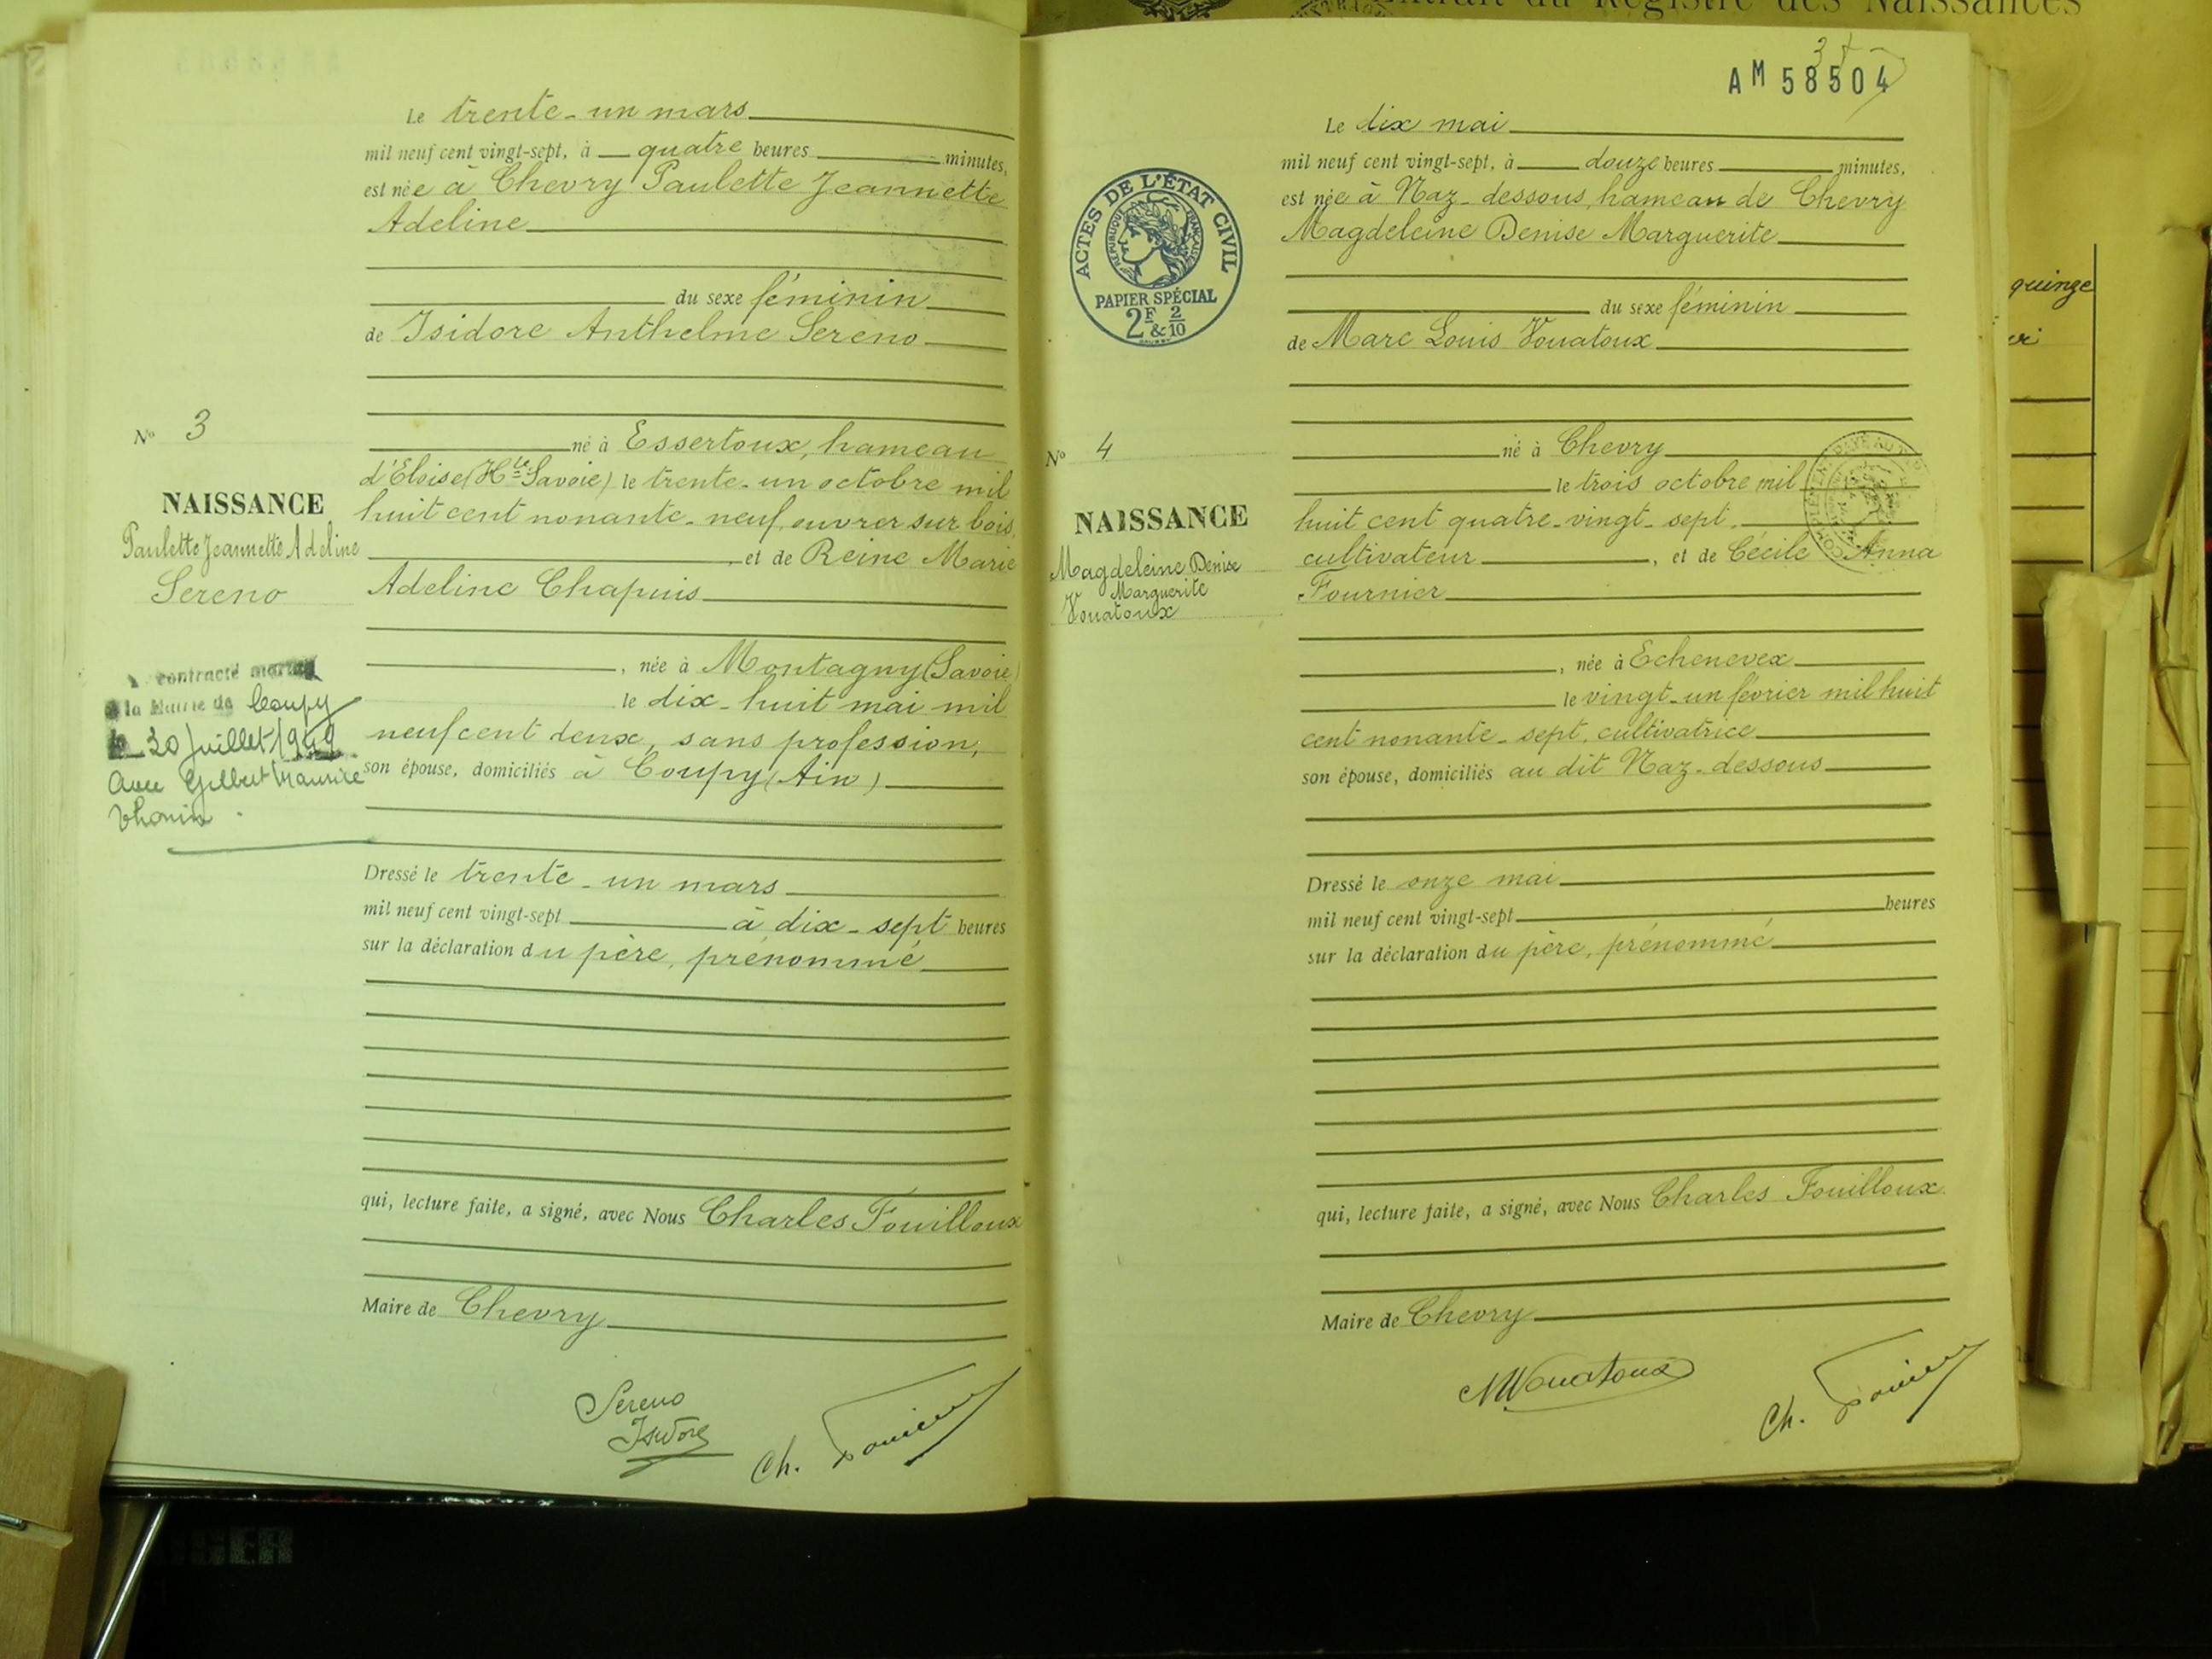 Le trente-un mars
mil neuf cent vingt-sept, à quatre heures minutes,
est née à Chevry Paulette Jeannette
Adeline
du sexe féminin
de Isidore Anthelme Sereno
né à Essertoux, hameau
d'Eloise (Hte Savoie) le trente-un octobre mil
huit cent nonante-neuf, ouvrer sur bois,
et de Reine Marie
Adeline Chapuis
, née à Montagny (Savoie)
le dix-huit mai mil
neuf cent deux, sans profession,
son épouse, domiciliés à Coupy (Ain)
Dressé le trente-un mars
mil neuf cent vingt-sept à dix-sept heures
sur la déclaration du père, prénommé
qui, lecture faite, a signé, avec Nous Charles Fouilloux
Maire de Chevry
Sereno
Isidore
Ch.
No 3
NAISSANCE
Paulette Jeannette Adeline
Sereno
contracté mariage
à la Mairie de Coupy
le 30 Juillet 1949
avec Gilbert Maurice
Thonin
AM 58504
Le dix mai
mil neuf cent vingt-sept, à douze heures minutes,
est née à Naz-dessous, hameau de Chevry
Magdeleine Denise Marguerite
du sexe féminin
de Marc Louis Vouatoux
né à Chevry
le trois octobre mil
huit cent quatre-vingt-sept,
cultivateur , et de Cécile Anna
Fournier
, née à Echenevex
le vingt-un février mil huit
cent nonante-sept, cultivatrice
son épouse, domiciliés au dit Naz-dessous
Dressé le onze mai
mil neuf cent vingt-sept heures
sur la déclaration du père, prénommé
qui, lecture faite, a signé, avec Nous Charles Fouilloux
Maire de Chevry
MVouatoux
Ch.
ACTES DE L'ÉTAT CIVIL
RÉPUBLIQUE FRANÇAISE
PAPIER SPÉCIAL
2F & 2/10
No 4
NAISSANCE
Magdeleine Denise
Marguerite
Vouatoux
Extrait du Registre des Naissances
quinze